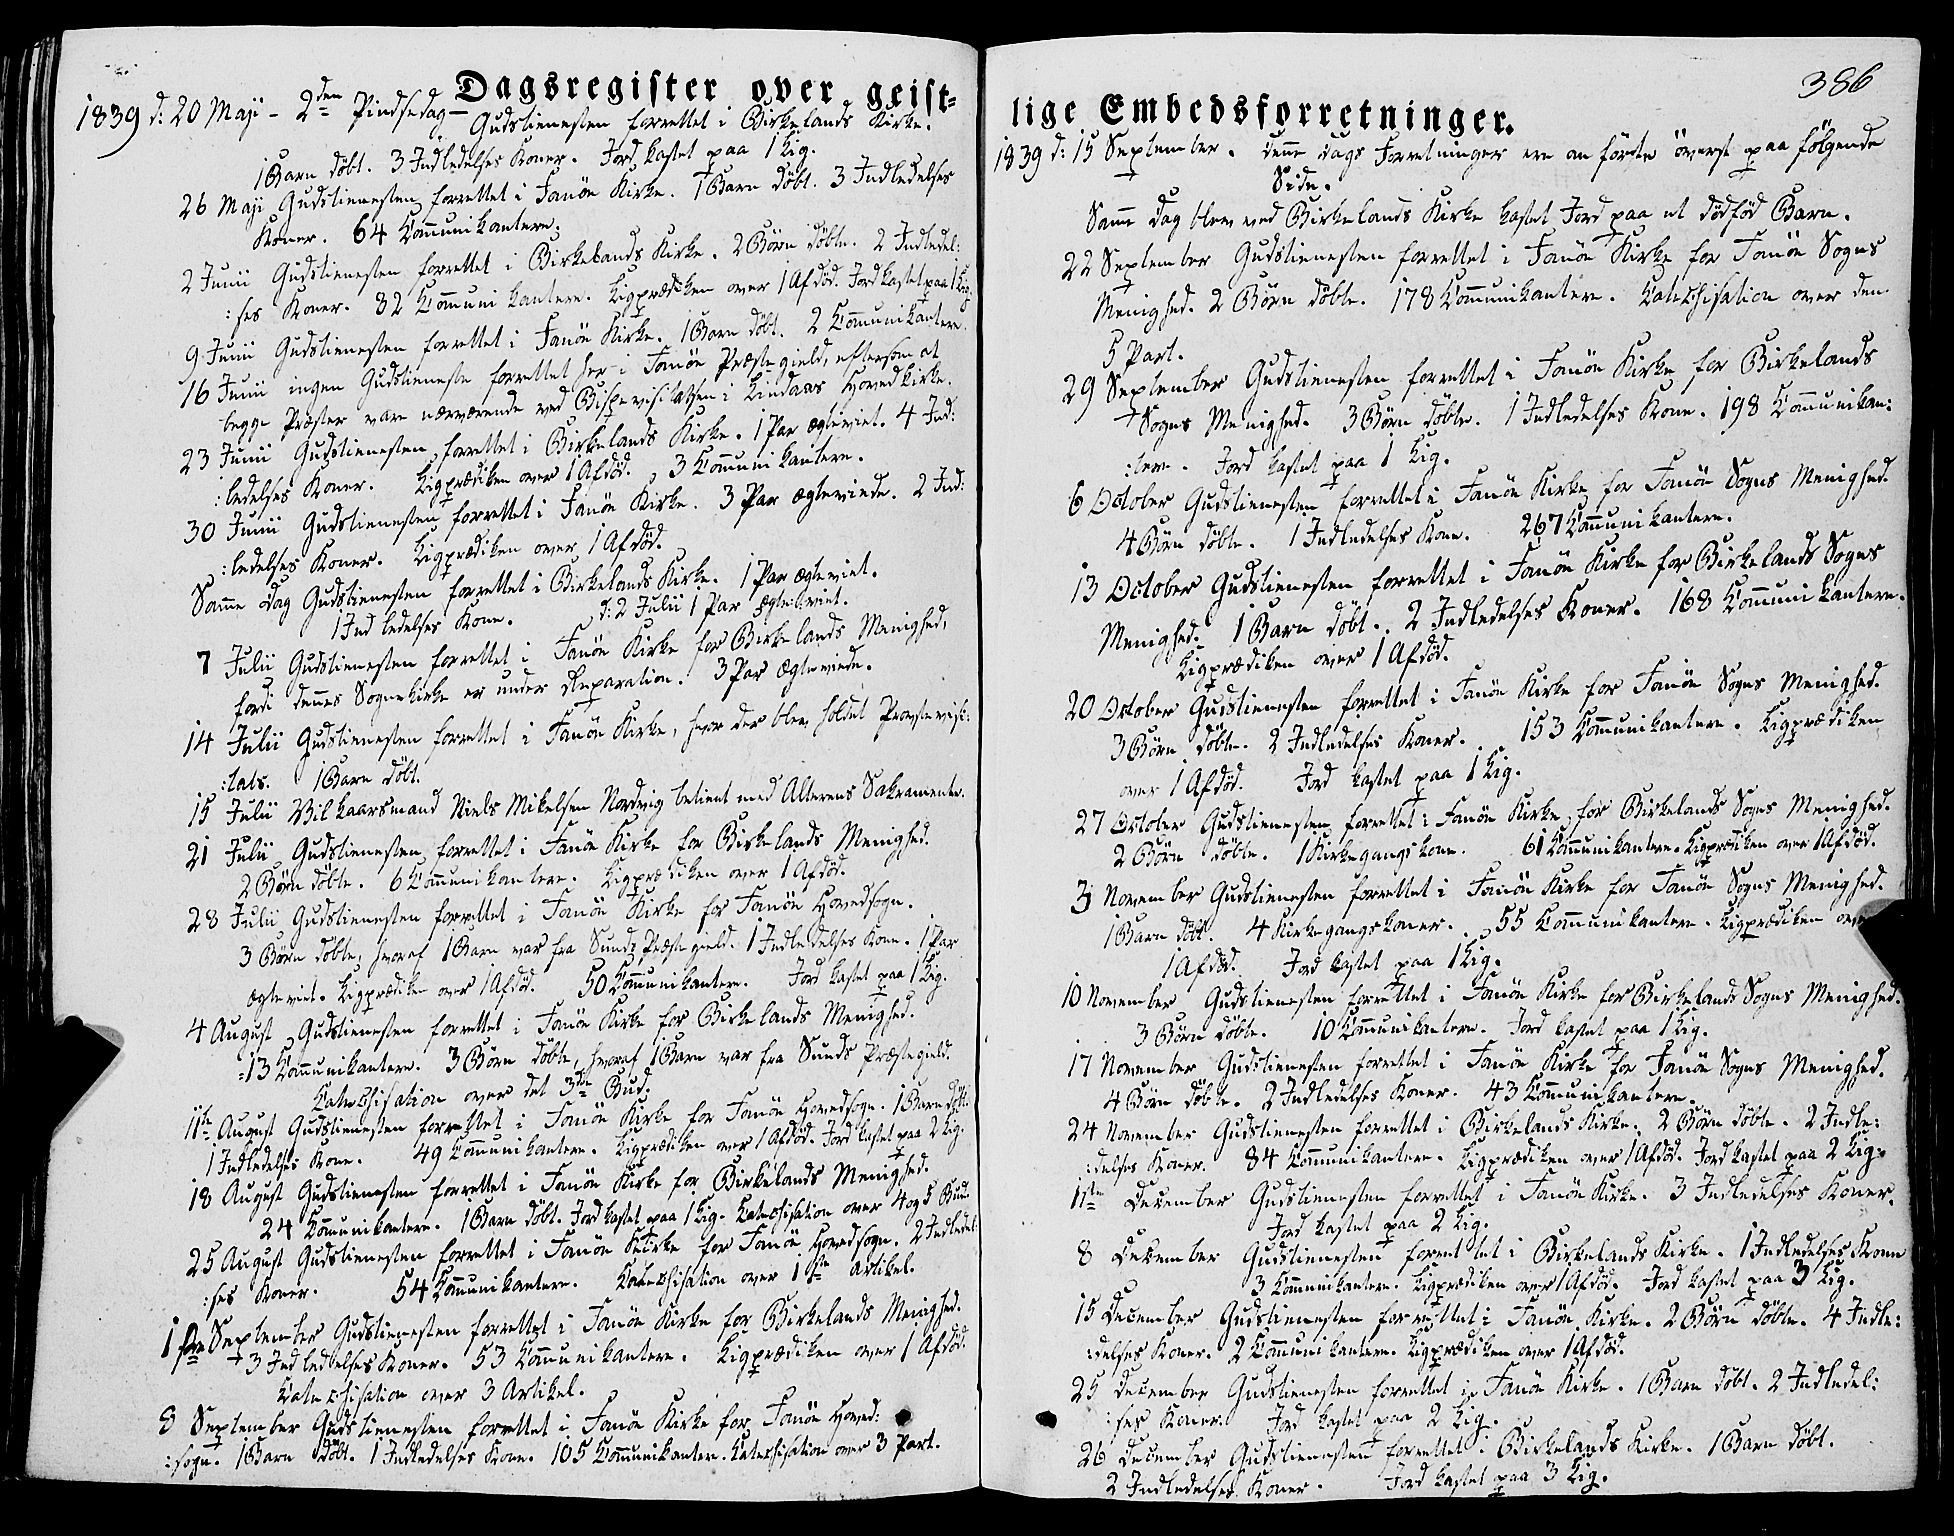 Dagsregister over geist=
1839 d: 20 Maji - 2den Pindsedag - Gudstienesten forrettet i Birkelands Kirke.
1 Barn döbt. 3 Indledelses Koner. Jord kastet paa 1 Lig.
26 Maji Gudstienesten forrettet i Fanöe Kirke. 1 Barn döbt. 3 Indledelses
Koner. 64 Communikantere.
2 Junii Gudstienesten forrettet i Birkelands Kirke. 2 Börn döbte. 2 Indledel:
:ses Koner. 82 Communikantere. Ligprædiken over 1 Afdöd. Jord kastet paa 1 Lig.
9 Junii Gudstienesten forrettet i Fanöe Kirke. 1 Barn döbt. 2 Communikantere.
16 Junii ingen Gudstieneste forrettet her i Fanöe Præstegield, eftersom at
begge Præster vare nærværende ved Bispevisitatsen i Lindaas Hovedkirke.
23 Junii Gudstienesten forrettet i Birkelands Kirke. 1 Par ægteviet. 4 Ind:
:ledelses Koner. Ligprædiken over 1 Afdöd. 3 Communikantere.
30 Junii Gudstienesten forrettet i Fanöe Kirke. 3 Par ægteviede. 2 Ind:
:ledelses Koner. Ligprædiken over 1 Afdöd.
Samme Dag Gudstienesten forrettet i Birkelands Kirke. 1 Par ægteviet.
1 Indledelses Kone. d: 2 Julii 1 Par ægteviet.
7 Julii Gudstienesten forrettet i Fanöe Kirke for Birkelands Menighed,
fordi dennes Sognekirke er under Reparation. 3 Par ægteviede.
14 Julii Gudstienesten forrettet i Fanöe Kirke, hvor der blev holdet Provstevisi:
:tats. 1 Barn döbt.
15 Julii Vilkaarsmand Niels Mikelsen Nordvig betient med Alterens Sakramente.
21 Julii Gudstienesten forrettet i Fanöe Kirke for Birkelands Menighed.
2 Börn döbte. 6 Communikantere. Ligprædiken over 1 Afdöd.
28 Julii Gudstienesten forrettet i Fanöe Kirke for Fanöe Hovedsogn.
3 Börn döbte, hvoraf 1 Barn var fra Sunds Præstegield. 1 Indledelses Kone. 1 Par
ægteviet. Ligprædiken over 1 Afdöd. 50 Communikantere. Jord kastet paa 1 Lig.
4 August Gudstienesten forrettet i Fanöe Kirke for Birkelands Menighed.
13 Communikantere. 3 Börn döbte, hvoraf 1 Barn var fra Sunds Præstegield.
Catechisation over det 3die Bud.
11te August Gudstienesten forrettet i Fanöe Kirke for Fanöe Hovedsogn. 1 Barn döbt.
1 Indledelses Kone. 49 Communikantere. Ligprædiken over 1 Afdöd. Jord kastet paa 2 Lig.
18 August Gudstienesten forrettet i Fanöe Kirke for Birkelands Menighed.
24 Communikantere. 1 Barn döbt. Jord kastet paa 1 Lig. Catechisation over 4 og 5 Bud.
25 August Gudstienesten forrettet i Fanöe Kirke for Fanöe Hovedsogn. 2 Indledel:
:ses Koner. 54 Communikantere. Catechisation over 1ste Artikel.
1ste September Gudstienesten forrettet i Fanöe Kirke for Birkelands Menighed.
3 Indledelses Koner. 53 Communikantere. Ligprædiken over 1 Afdöd.
Catechisation over 3 Artikel.
8 September Gudstienesten forrettet i Fanöe Kirke for Fanöe Hoved:
:sogn. 1 Barn döbt. 1 Indledelses Kone. 105 Communikantere. Catechisation over 3 Part.
386
lige Embedsforretninger.
1839 d: 15 September. Denne Dags Forretninger ere anförte överst paa fölgende
Side.
Samme Dag blev ved Birkelands Kirke kastet Jord paa et dödfød Barn.
22 September Gudstienesten forrettet i Fanöe Kirke for Fanöe Sogns
Menighed. 2 Börn döbte. 178 Communikantere. Catechisation over den
5 Part.
29 September Gudstienesten forrettet i Fanöe Kirke for Birkelands
Sogns Menighed. 3 Börn döbte. 1 Indledelses Kone. 198 Communikan:
:tere. Jord kastet paa 1 Lig.
6 October Gudstienesten forrettet i Fanöe Kirke for Fanöe Sogns Menighed.
4 Börn döbte. 1 Indledelses Kone. 267 Communikantere.
13 October Gudstienesten forrettet i Fanöe Kirke for Birkelands Sogns
Menighed. 1 Barn döbt. 2 Indledelses Koner. 168 Communikantere.
Ligprædiken over 1 Afdöd.
20 October Gudstienesten forrettet i Fanöe Kirke for Fanöe Sogns Menighed.
3 Börn döbte. 2 Indledelses Koner. 153 Communikantere. Ligprædiken
over 1 Afdöd. Jord kastet paa 1 Lig.
27 October Gudstienesten forrettet i Fanöe Kirke for Birkelands Sogns Menighed.
2 Börn döbte. 1 Kirkegangskone. 61 Communikantere. Ligprædiken over 1 Afdöd.
3 November Gudstienesten forrettet i Fanöe Kirke for Fanöe Sogns Menighed.
1 Barn döbt. 4 Kirkegangskoner. 55 Communikantere. Ligprædiken over
1 Afdöd. Jord kastet paa 1 Lig.
10 November Gudstienesten forrettet i Fanöe Kirke for Birkelands Sogns Menighed.
3 Börn döbte. 10 Communikantere. Jord kastet paa 1 Lig.
17 November Gudstienesten forrettet i Fanöe Kirke for Fanöe Sogns Menighed.
4 Börn döbte. 2 Indledelses Koner. 43 Communikantere.
24 November Gudstienesten forrettet i Birkelands Kirke. 2 Börn döbte. 2 Indle:
:delses Koner. 84 Communikantere. Ligprædiken over 1 Afdöd. Jord kastet paa 2 Lig.
1ste December Gudstienesten forrettet i Fanöe Kirke. 3 Indledelses Koner.
Jord kastet paa 2 Lig.
8 December Gudstienesten forrettet i Birkelands Kirke. 1 Indledelses Kone
3 Communikantere. Ligprædiken over 1 Afdöd. Jord kastet paa 3 Lig.
15 December Gudstienesten forrettet i Fanöe Kirke. 2 Börn döbte. 4 Indle:
:delses Koner. 2 Communikantere. Ligprædiken over 1 Afdöd.
25 December Gudstienesten forrettet i Fanöe Kirke. 1 Barn döbt. 2 Indledel:
:ses Koner. Jord kastet paa 2 Lig.
26 December Gudstienesten forrettet i Birkelands Kirke. 1 Barn döbt.
2 Indledelses Koner. Jord kastet paa 3 Lig.